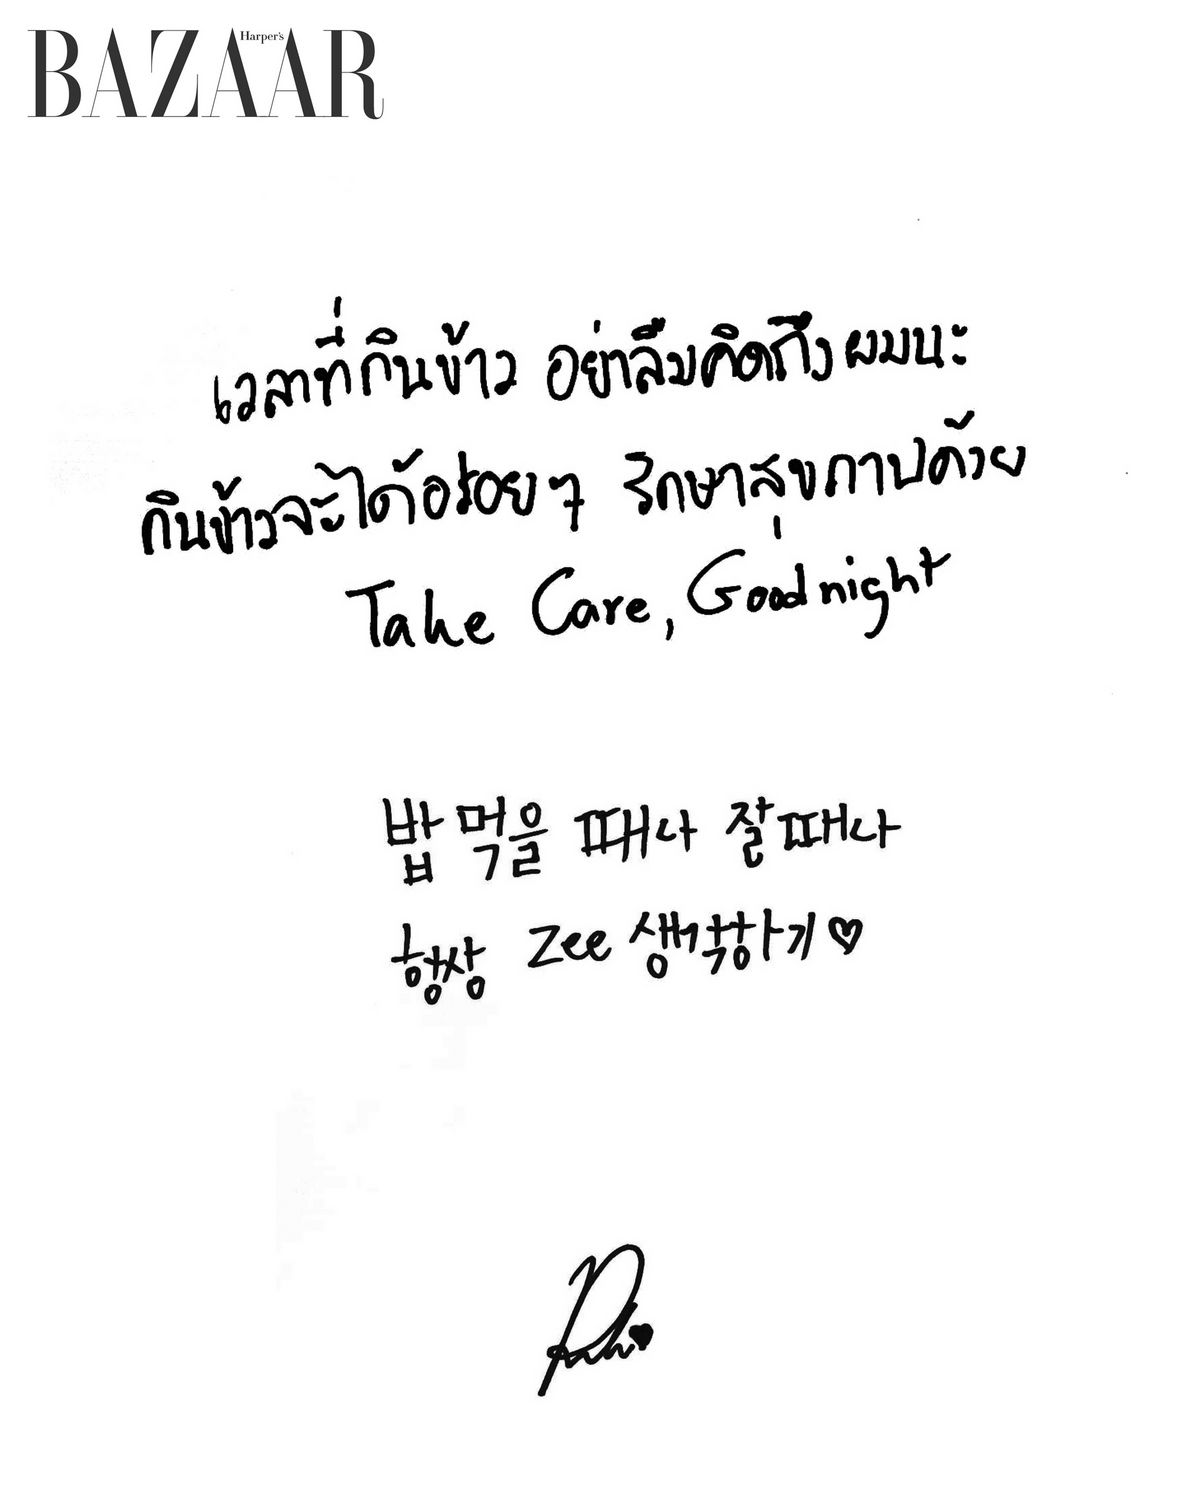 Harper's
BAZAAR
เวลาที่กินข้าว อย่าลืมคิดถึงผมนะ
กินข้าวจะได้อร่อยๆ รักษาสุขภาพด้วย
Take Care, Goodnight
밥 먹을 때나 잘때나
항상 Zee 생각하기♡